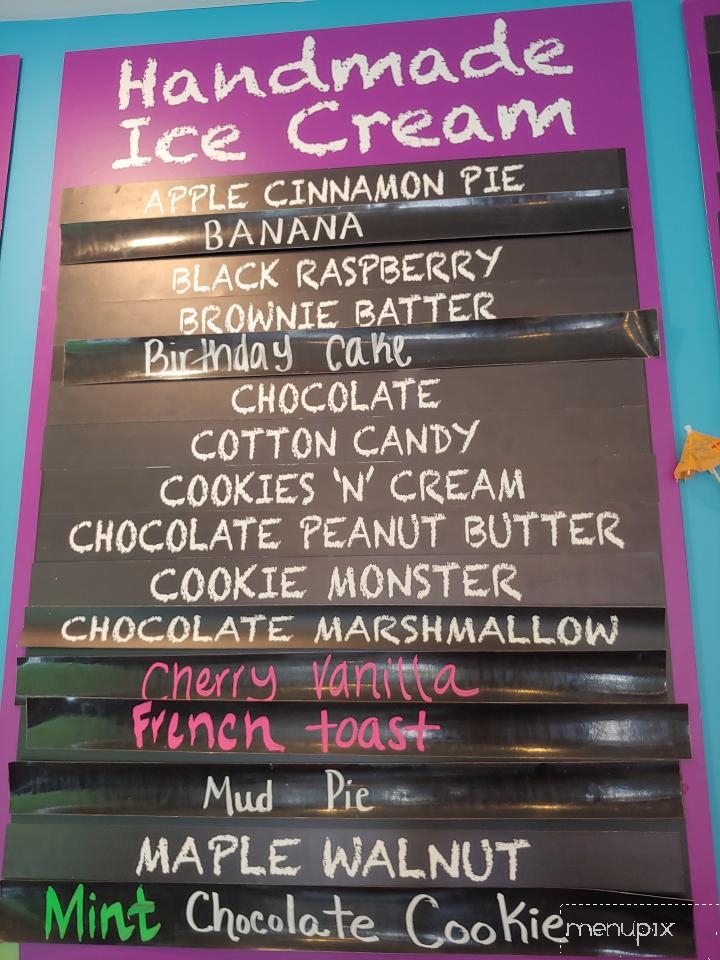 Handmade
Ice Cream
APPLE CINNAMON PIE
BANANA
BLACK RASPBERRY
BROWNIE BATTER
Birthday Cake
CHOCOLATE
COTTON CANDY
COOKIES 'N' CREAM
CHOCOLATE PEANUT BUTTER
COOKIE MONSTER
CHOCOLATE MARSHMALLOW
Cherry Vanilla
French toast
Mud Pie
MAPLE WALNUT
Mint Chocolate Cookie
menupix